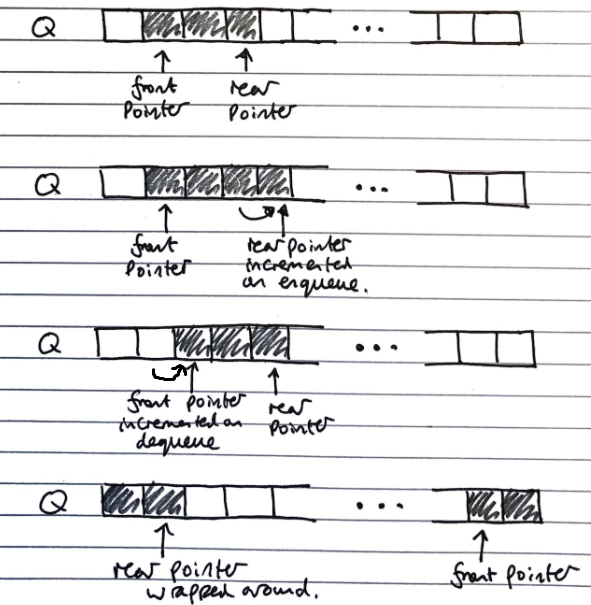 Q ...
front
pointer
rear
pointer
Q ...
front
pointer
rear pointer
incremented
on enqueue.
Q ...
front pointer
incremented on
dequeue
rear
pointer
Q ...
rear pointer
wrapped around.
front pointer